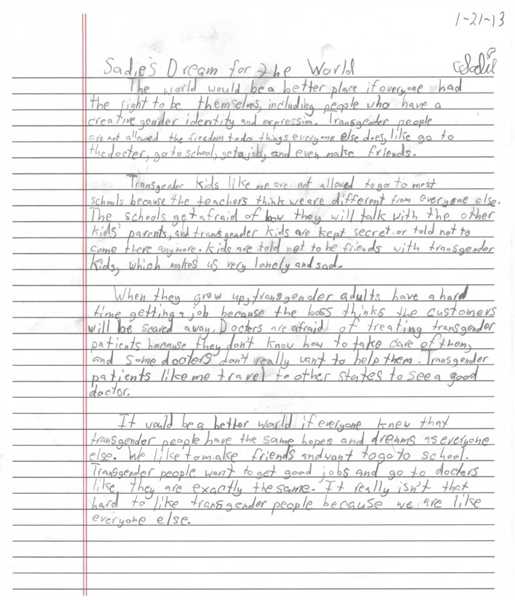 1-21-13
Sadie's Dream for the World
Sadie
The world would be a better place if everyone had
the right to be themselves, including people who have a
creative gender identity and expression. Transgender people
are not allowed the freedom to do things everyone else does, like go to
the docter, go to school, get a job, and even make friends.
Transgender kids like me are not allowed to go to most
schools because the teachers think we are different from everyone else.
The schools get afraid of how they will talk with the other
kids' parents, and transgender kids are kept secret or told not to
come there anymore. Kids are told not to be friends with transgender
kids, which makes us very lonely and sad.
When they grow up, transgender adults have a hard
time getting a job because the boss thinks the customers
will be scared away. Doctors are afraid of treating transgender
patients because they don't know how to take care of them,
and some docters don't really want to help them. Transgender
patients like me travel to other states to see a good
doctor.
It would be a better world if everyone knew that
transgender people have the same hopes and dreams as everyone
else. We like to make friends and want to go to school.
Transgender people want to get good jobs and go to doctors
like they are exactly the same. It really isn't that
hard to like transgender people because we are like
everyone else.